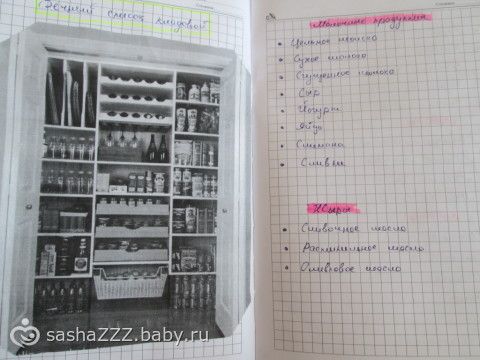 список кладовой
Молочные продукты
Цельное молоко
Сухое молоко
Сгущенное молоко
Сыр
Йогурт
Яйцо
Сметана
Сливки
Жиры
Сливочное масло
Растительное масло
Оливковое масло
sashaZZZ.baby.ru